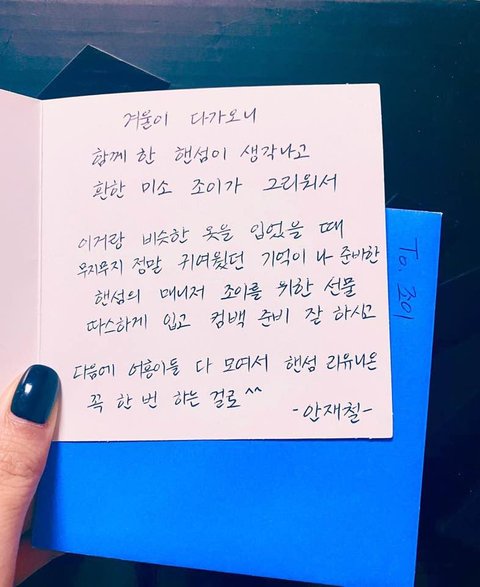 겨울이 다가오니
함께 한 핸섬이 생각나고
환한 미소 조이가 그리워서
이거랑 비슷한 옷을 입었을 때
무지무지 정말 귀여웠던 기억이 나 준비한
핸섬의 매니저 조이를 위한 선물
따스하게 입고 컴백 준비 잘 하시고
다음에 어용이들 다 모여서 핸섬 리유니온
꼭 한 번 하는 걸로^^
-안재철-
To. 조이